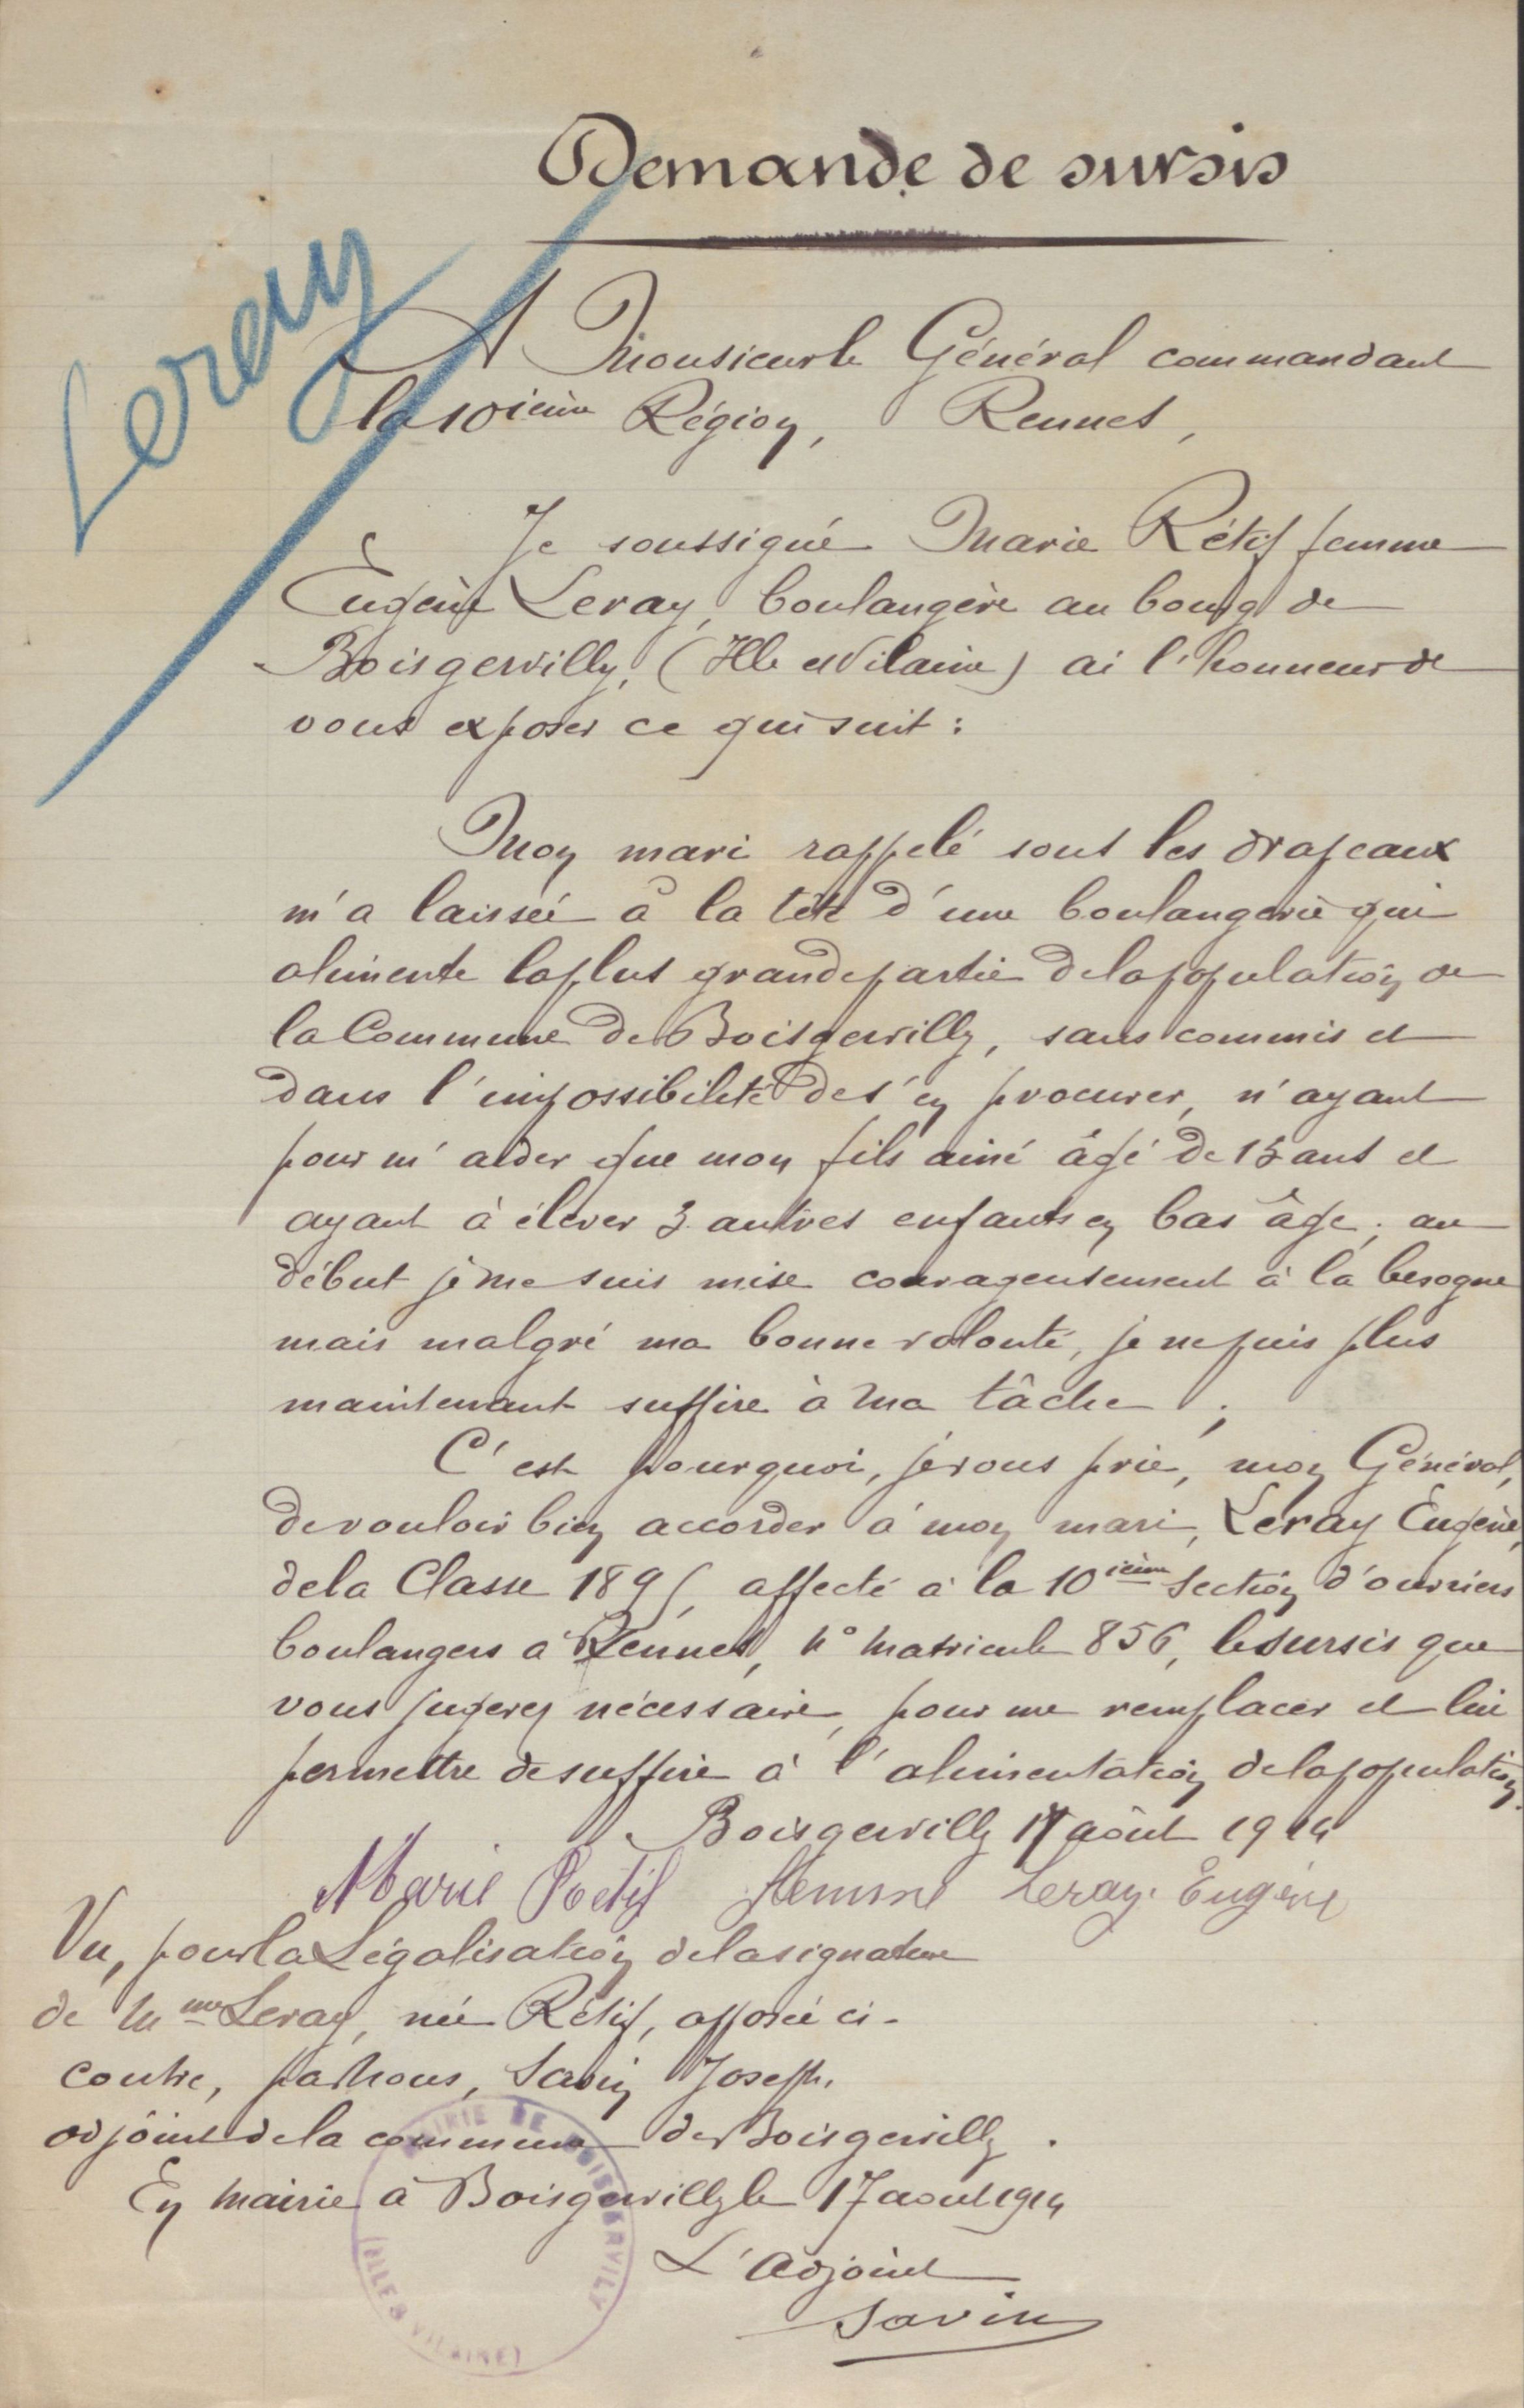 Demande de sursis
Leray
A Monsieur le Général commandant
la 10ième Région, Rennes,
Je soussigné Marie Rétif femme
Eugène Leray, boulangère au bourg de
Boisgervilly, (Ille et Vilaine) ai l'honneur de
vous exposer ce qui suit :
Mon mari rappelé sous les drapeaux
m'a laissée à la tête d'une boulangerie qui
alimente la plus grande partie de la population de
la Commune de Boisgervilly, sans commis et
dans l'impossibilité de s'en procurer, n'ayant
pour m'aider que mon fils ainé âgé de 15 ans et
ayant à élever 3 autres enfants en bas âge ; au
début je me suis mise courageusement à la besogne
mais malgré ma bonne volonté, je ne puis plus
maintenant suffire à ma tâche ;
C'est pourquoi, je vous prie, mon Général,
de vouloir bien accorder à mon mari, Leray Eugène,
de la Classe 1895, affecté à la 10ième Section d'ouvriers
boulangers à Rennes, n° matricule 856, le sursis que
vous jugerez nécessaire, pour me remplacer et lui
permettre de suffire à l'alimentation de la population.
Boisgervilly 17 août 1914
Marie Retif femme Leray Eugène
Vu, pour la Légalisation de la signature
de Mme Leray, née Rétif, apposée ci-
contre, par nous, Savin Joseph,
adjoint de la commune de Boisgervilly.
En mairie à Boisgervilly le 17 aout 1914
L'adjoint
Savin
MAIRIE DE BOISGERVILLY
(ILLE & VILAINE)